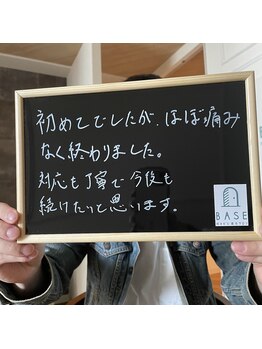 初めてでしたが、ほぼ痛み
なく終わりました。
対応も丁寧で今後も
続けたいと思います。
BASE